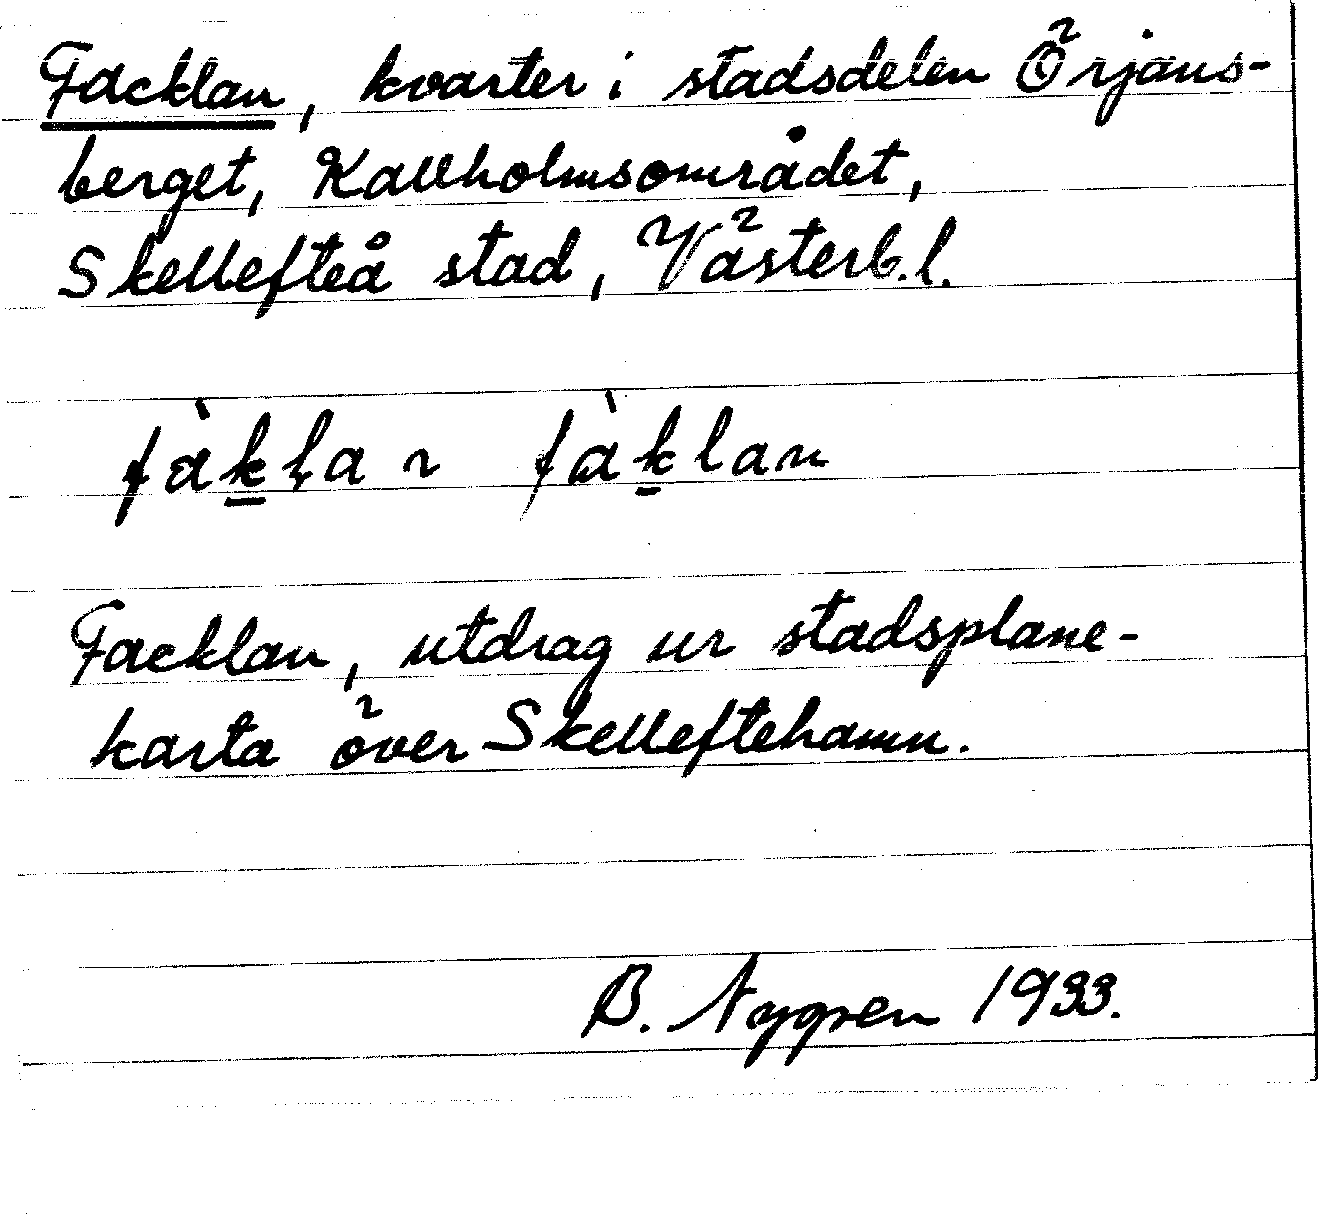 Facklan, kvarter i stadsdelen Örjäns-
berget, Kallholmsområdet,
Skellefteå stad, Västerb. l.
fàk̲la ~ fàk̲lan
Facklan, utdrag ur stadsplane-
karta över Skelleftehamn.
B. Nygren 1933.